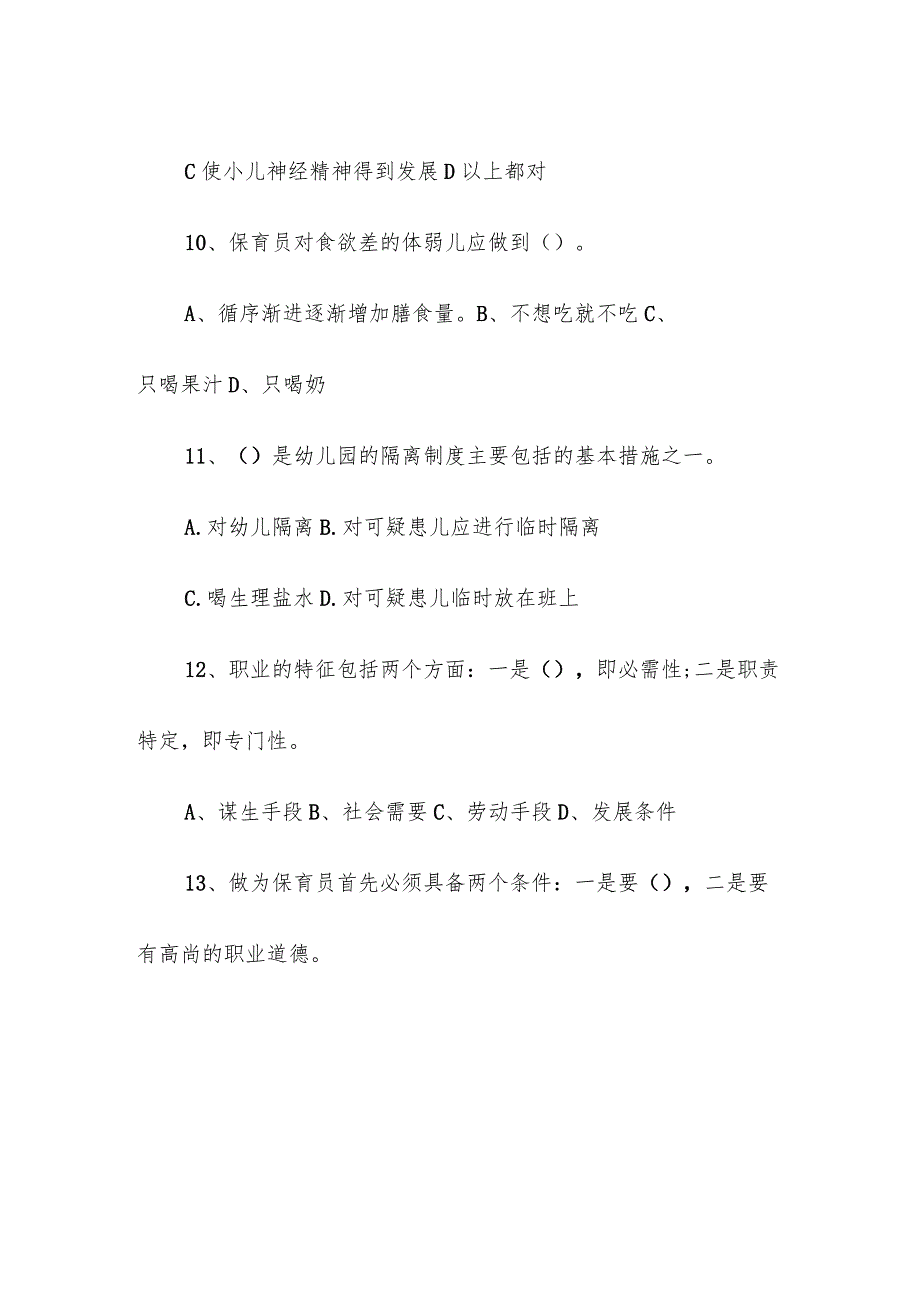 C 使小儿神经精神得到发展 D 以上都对
10、保育员对食欲差的体弱儿应做到（）。
A、循序渐进逐渐增加膳食量。B、不想吃就不吃 C、
只喝果汁 D、只喝奶
11、（）是幼儿园的隔离制度主要包括的基本措施之一。
A.对幼儿隔离 B.对可疑患儿应进行临时隔离
C.喝生理盐水 D.对可疑患儿临时放在班上
12、职业的特征包括两个方面：一是（），即必需性;二是职责
特定，即专门性。
A、谋生手段 B、社会需要 C、劳动手段 D、发展条件
13、做为保育员首先必须具备两个条件：一是要（），二是要
有高尚的职业道德。